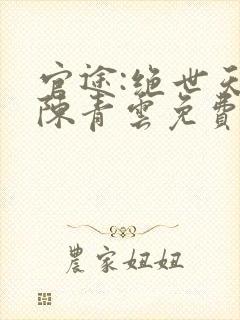 官途:绝世天
陈青雲免費
農家妞妞